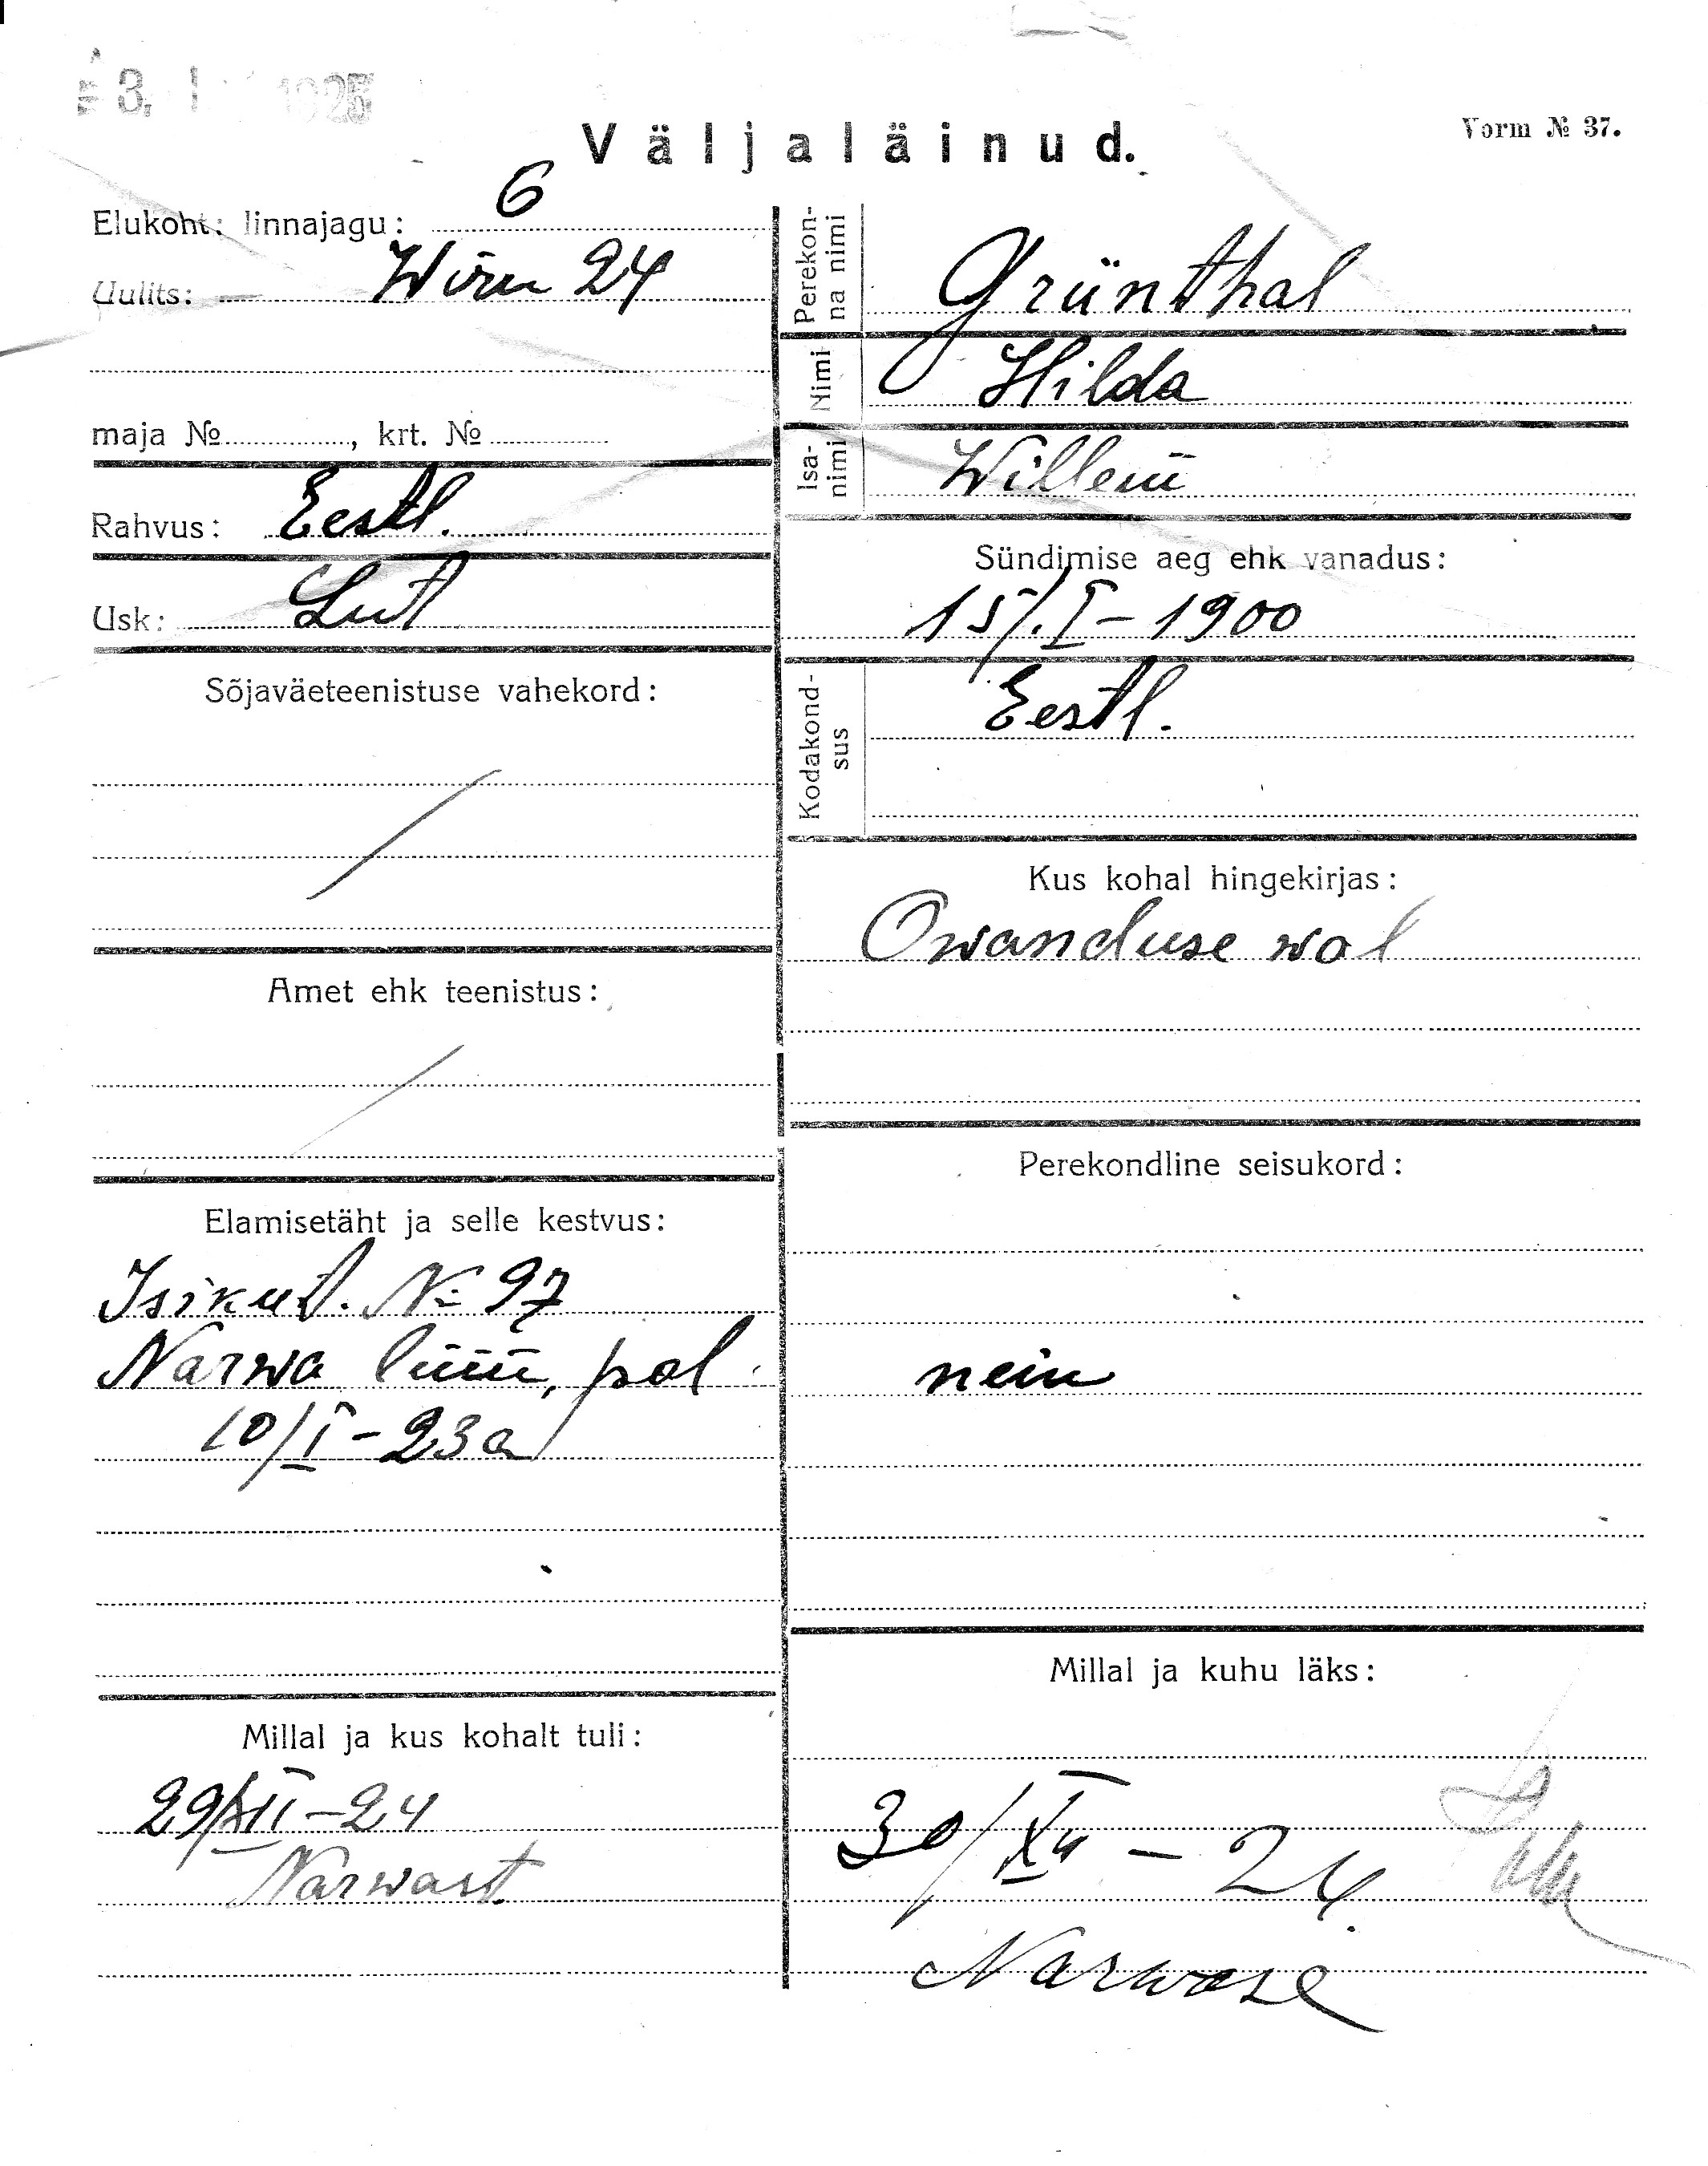 3. I 1925
Väljaläinud.
Vorm № 37.
Elukoht: linnajagu: 6
Uulits: Wiru 24
maja № , krt. №
Rahvus: Eestl.
Usk: Lut
Sõjaväeteenistuse vahekord:
Amet ehk teenistus:
Elamisetäht ja selle kestvus:
Isikut. № 97
Narwa linn, pol
10/I-23a
Millal ja kus kohalt tuli:
29/XII-24
Narwast
Perekon-
na nimi
Grünthal
Nimi
Hilda
Isa-
nimi
Willem
Sündimise aeg ehk vanadus:
15/.I-1900
Kodakond-
sus
Eestl.
Kus kohal hingekirjas:
Owanduse wal
Perekondline seisukord:
nein
Millal ja kuhu läks:
30/XII-24.
Narwase